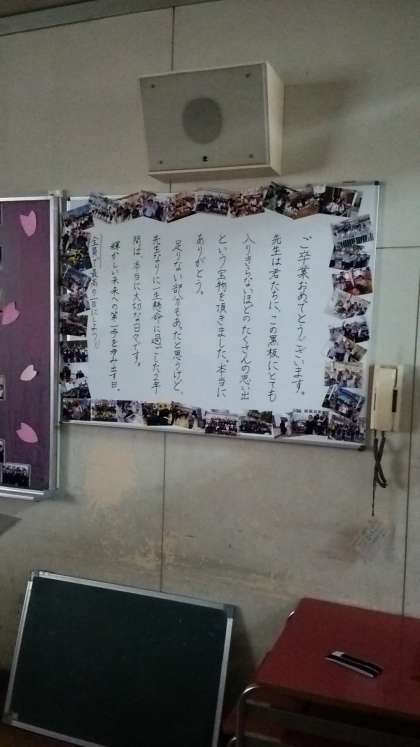 ご卒業おめでとうございます。
先生は君たちに、この黒板にとても
入りきらないほどのたくさんの思い出
という宝物を頂きました。本当に
ありがとう。
足りない部分もあったと思うけど、
先生なりに一生懸命に過ごした2年
間は、本当に大切な日々です。
輝かしい未来への第一歩を歩み出す日。
全員で最高の一日にしよう!!